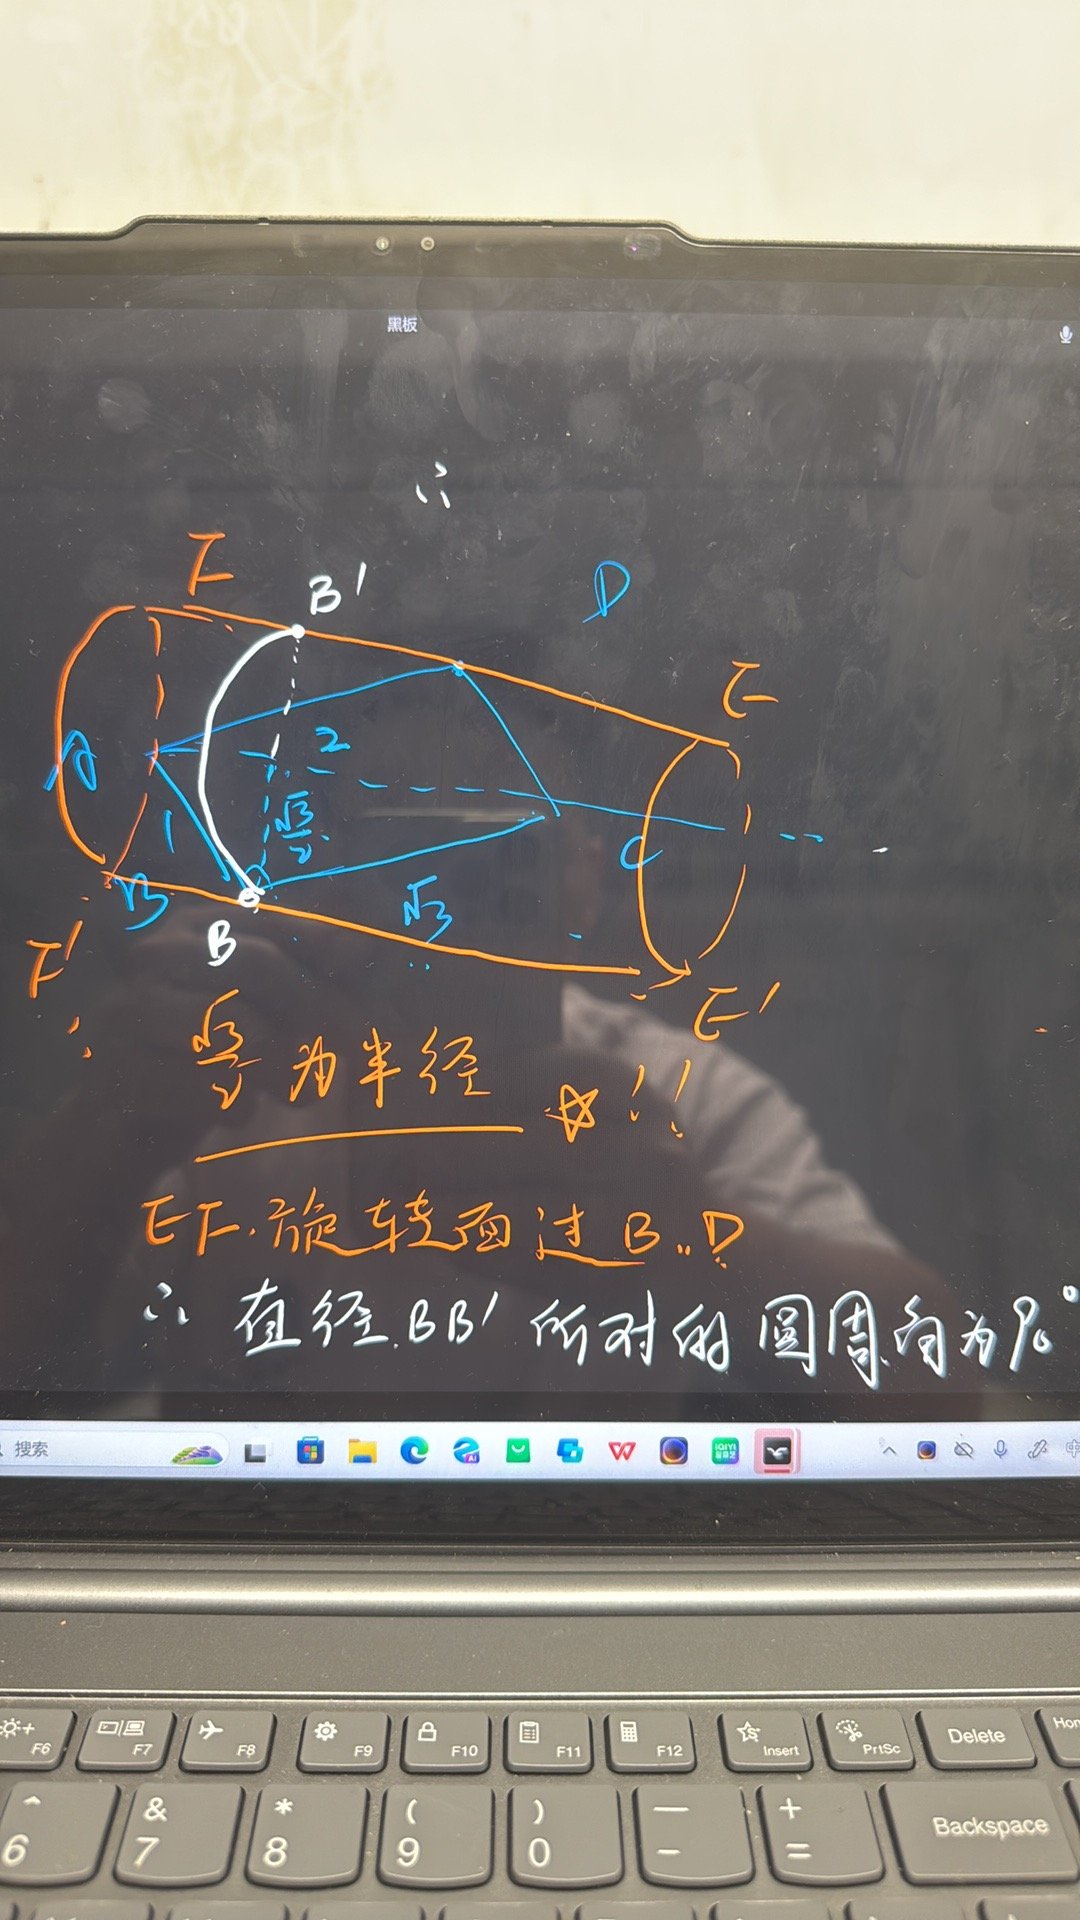 黑板
∴
F
B′
D
E
A
2
1
√3/2
C
B
√3
B
F′
E′
∴
√3/2 为半径 ☆!!
EF.旋转面过B..D
∴ 直径.BB′所对的圆周角为90°
搜索
F6 F7 F8 F9 F10 F11 F12 Insert PrtSc Delete
^ & * ( ) — +
6 7 8 9 0 - = Backspace